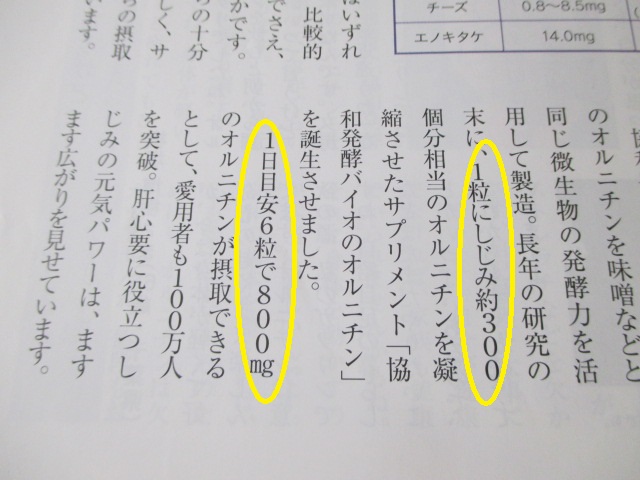 チーズ 0.8～8.5mg
エノキタケ 14.0mg
はいずれ
比較的
でさえ、
かです。
ちの十分
しく、サ
ちの摂取
います。
のオルニチンを味噌などと
同じ微生物の発酵力を活
用して製造。長年の研究の
末に、1粒にしじみ約300
個分相当のオルニチンを凝
縮させたサプリメント「協
和発酵バイオのオルニチン」
を誕生させました。
1日目安6粒で800mg
のオルニチンが摂取できる
として、愛用者も100万人
を突破。肝心要に役立つし
じみの元気パワーは、ます
ます広がりを見せています。